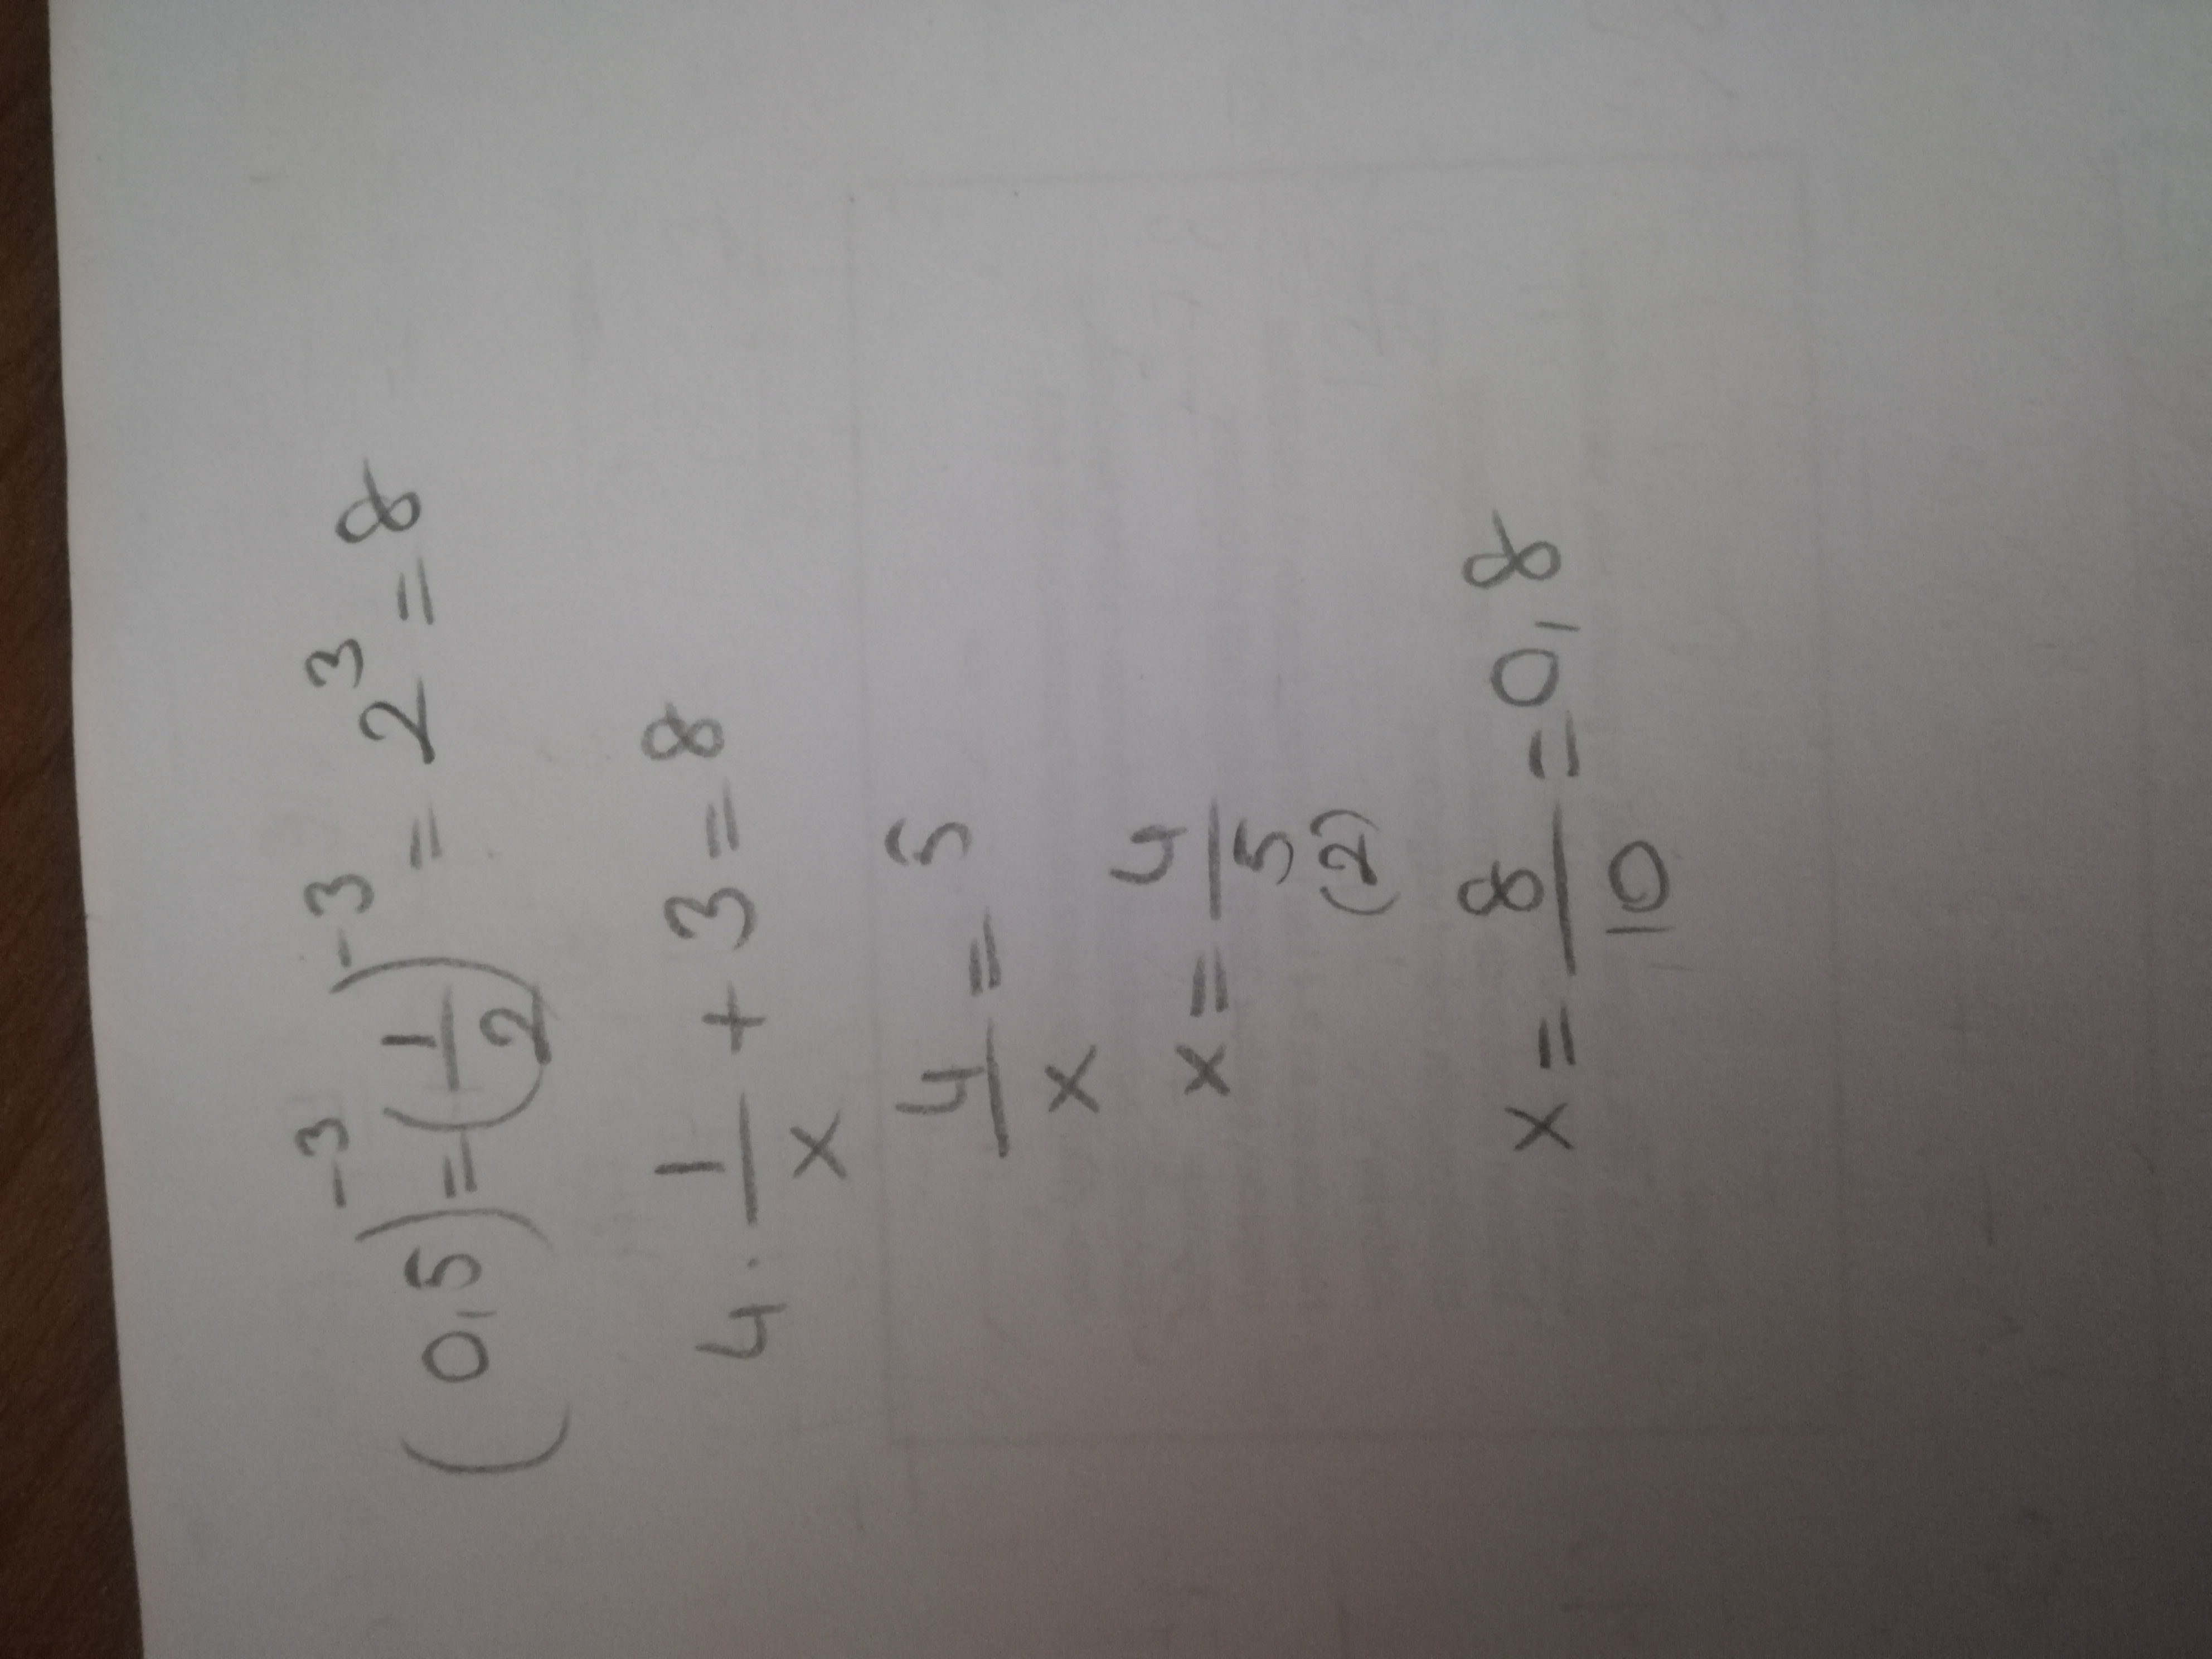 (0,5)^-3 = (1/2)^-3 = 2^3 = 8
4 · 1/x + 3 = 8
4/x = 5
x = 4/5
(2)
x = 8/10 = 0,8